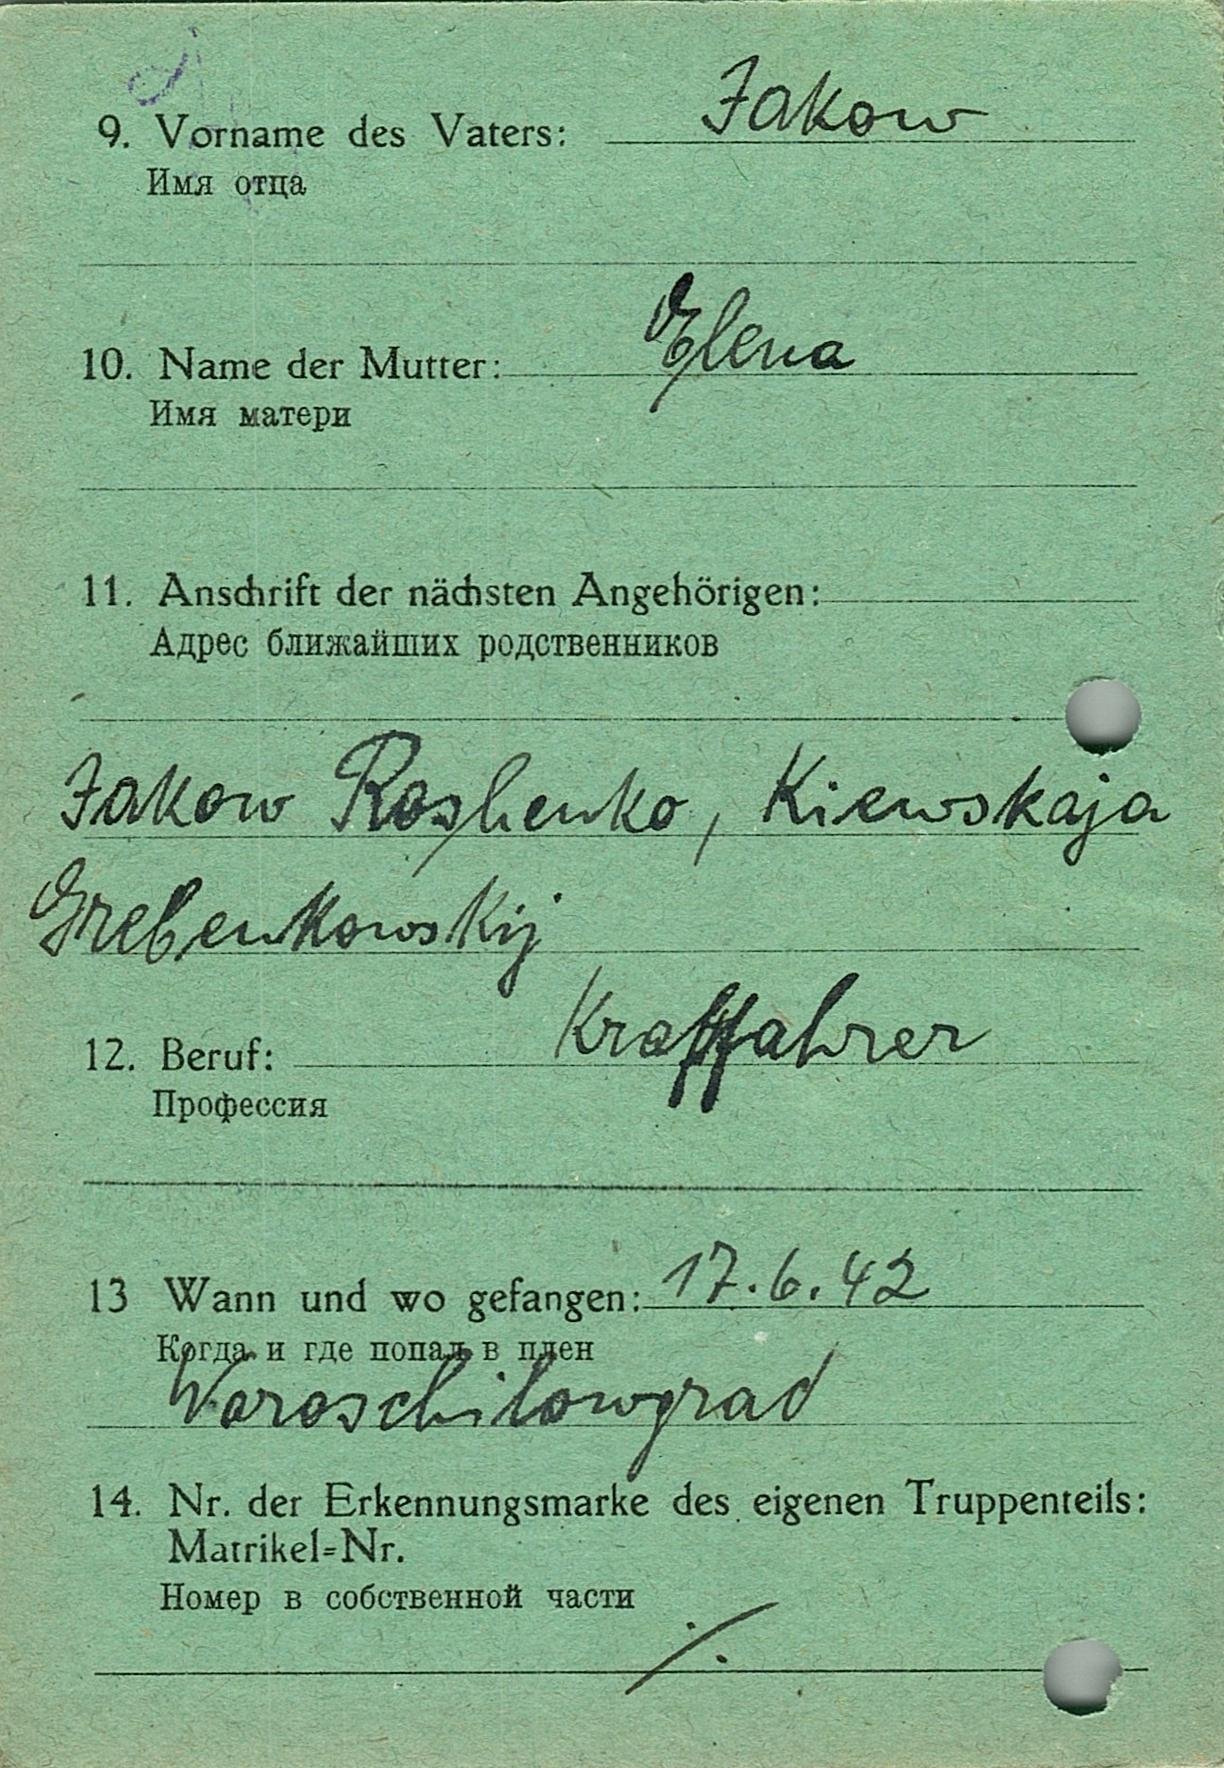 9. Vorname des Vaters: Jakow
Имя отца
10. Name der Mutter: Elena
Имя матери
11. Anschrift der nächsten Angehörigen:
Адрес ближайших родственников
Jakow Roshenko, Kiewskaja
Grebenkowskij
12. Beruf: Kraffahrer
Профессия
13 Wann und wo gefangen: 17.6.42
Когда и где попал в плен
Woroschilowgrad
14. Nr. der Erkennungsmarke des eigenen Truppenteils:
Matrikel=Nr.
Номер в собственной части
./.